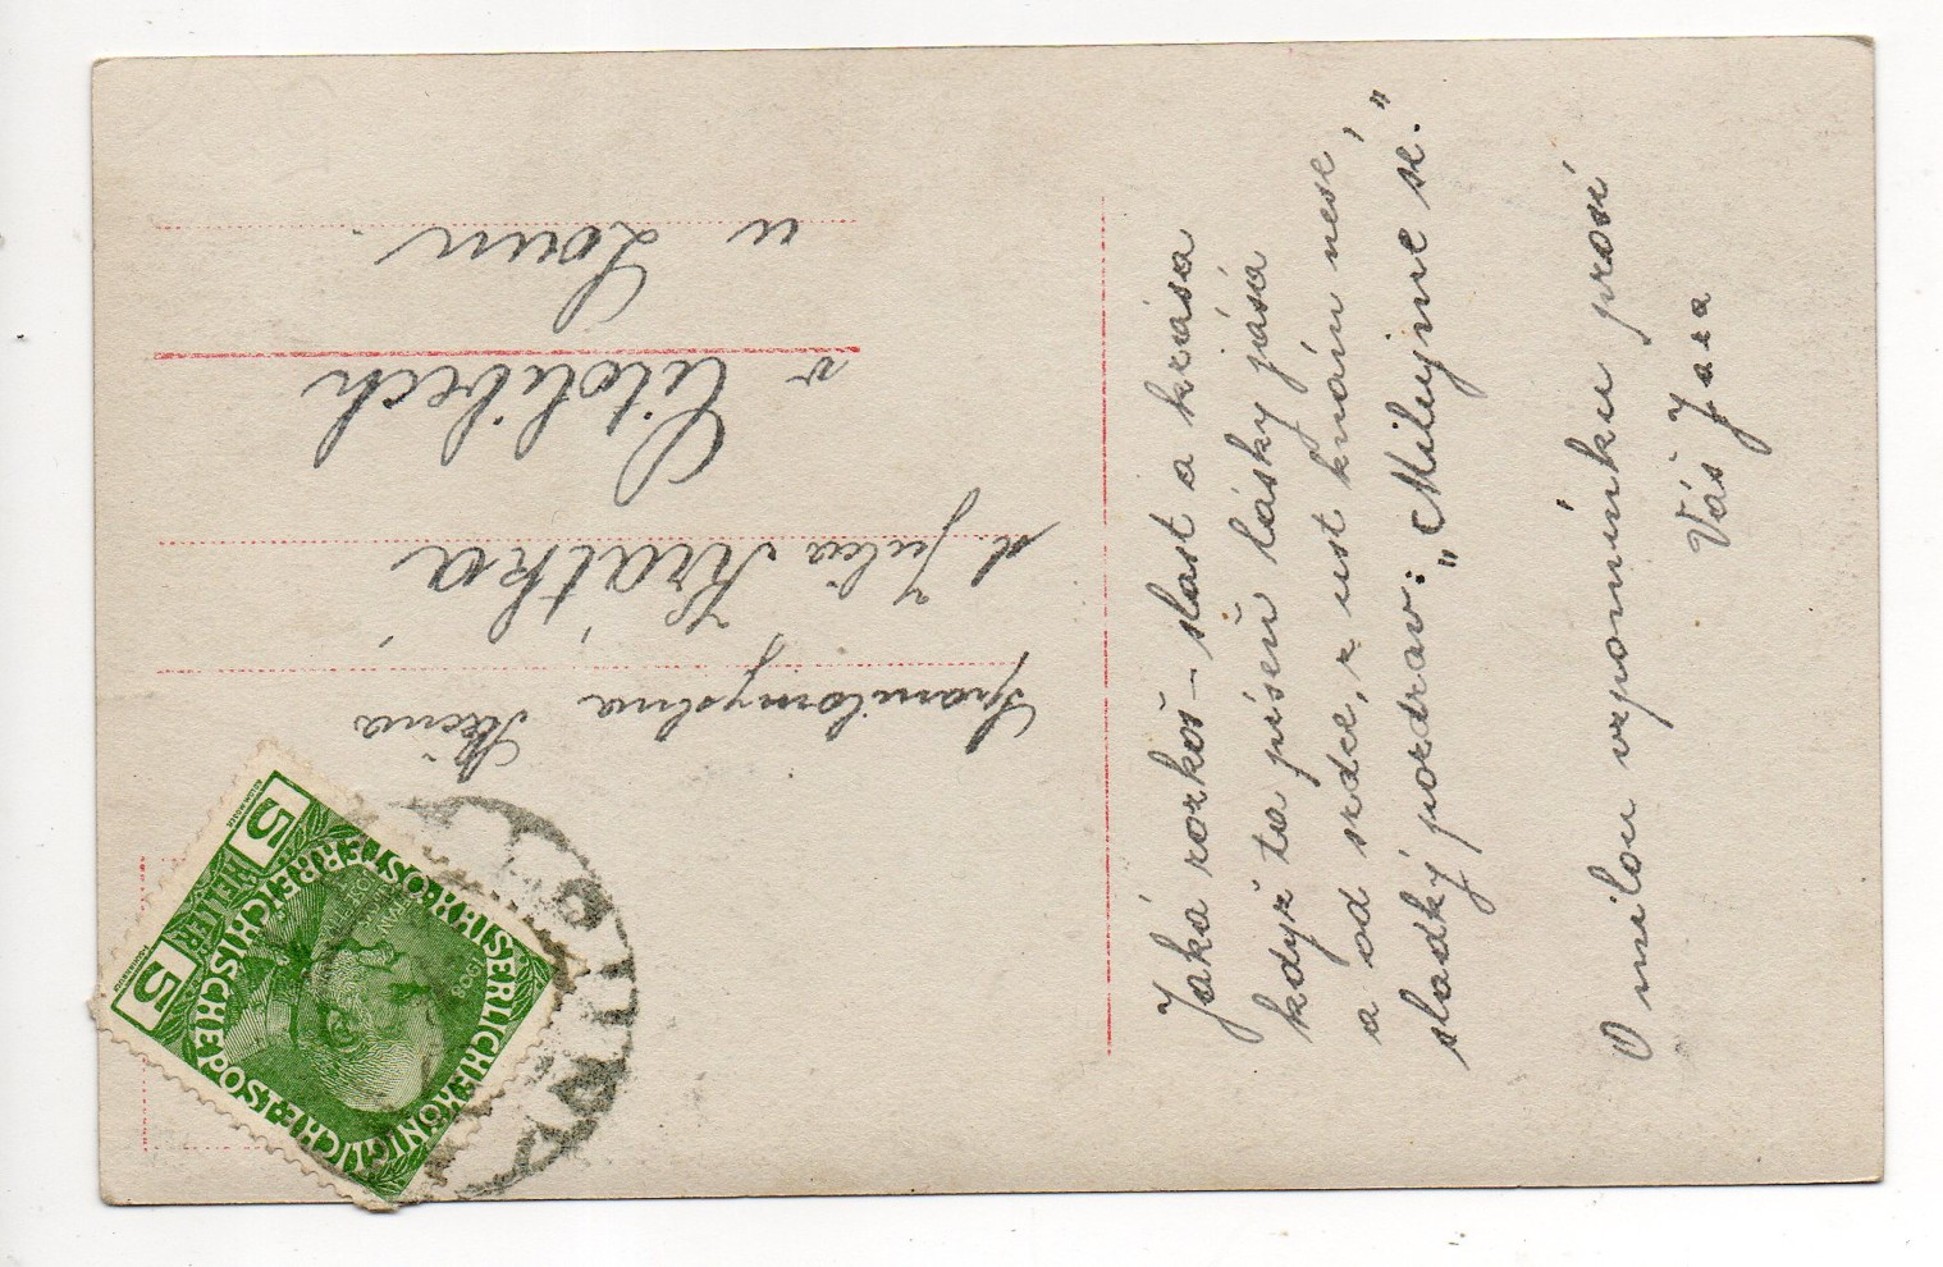 Jaká rozkoš – slast a krása
když ta píseň lásky jásá
a od srdce, z ust knám nese,
sladký pozdrav: „Milujme se."
O milou vzpomínku prosí
Váš Jara
Spanilomyslná
Slečna
sl. Julia Krátká
v Citolibech
u Loun
KAISERLICHE KÖNIGLICHE
ÖSTERREICHISCHE POST
1848
1908
5 HELLER 5